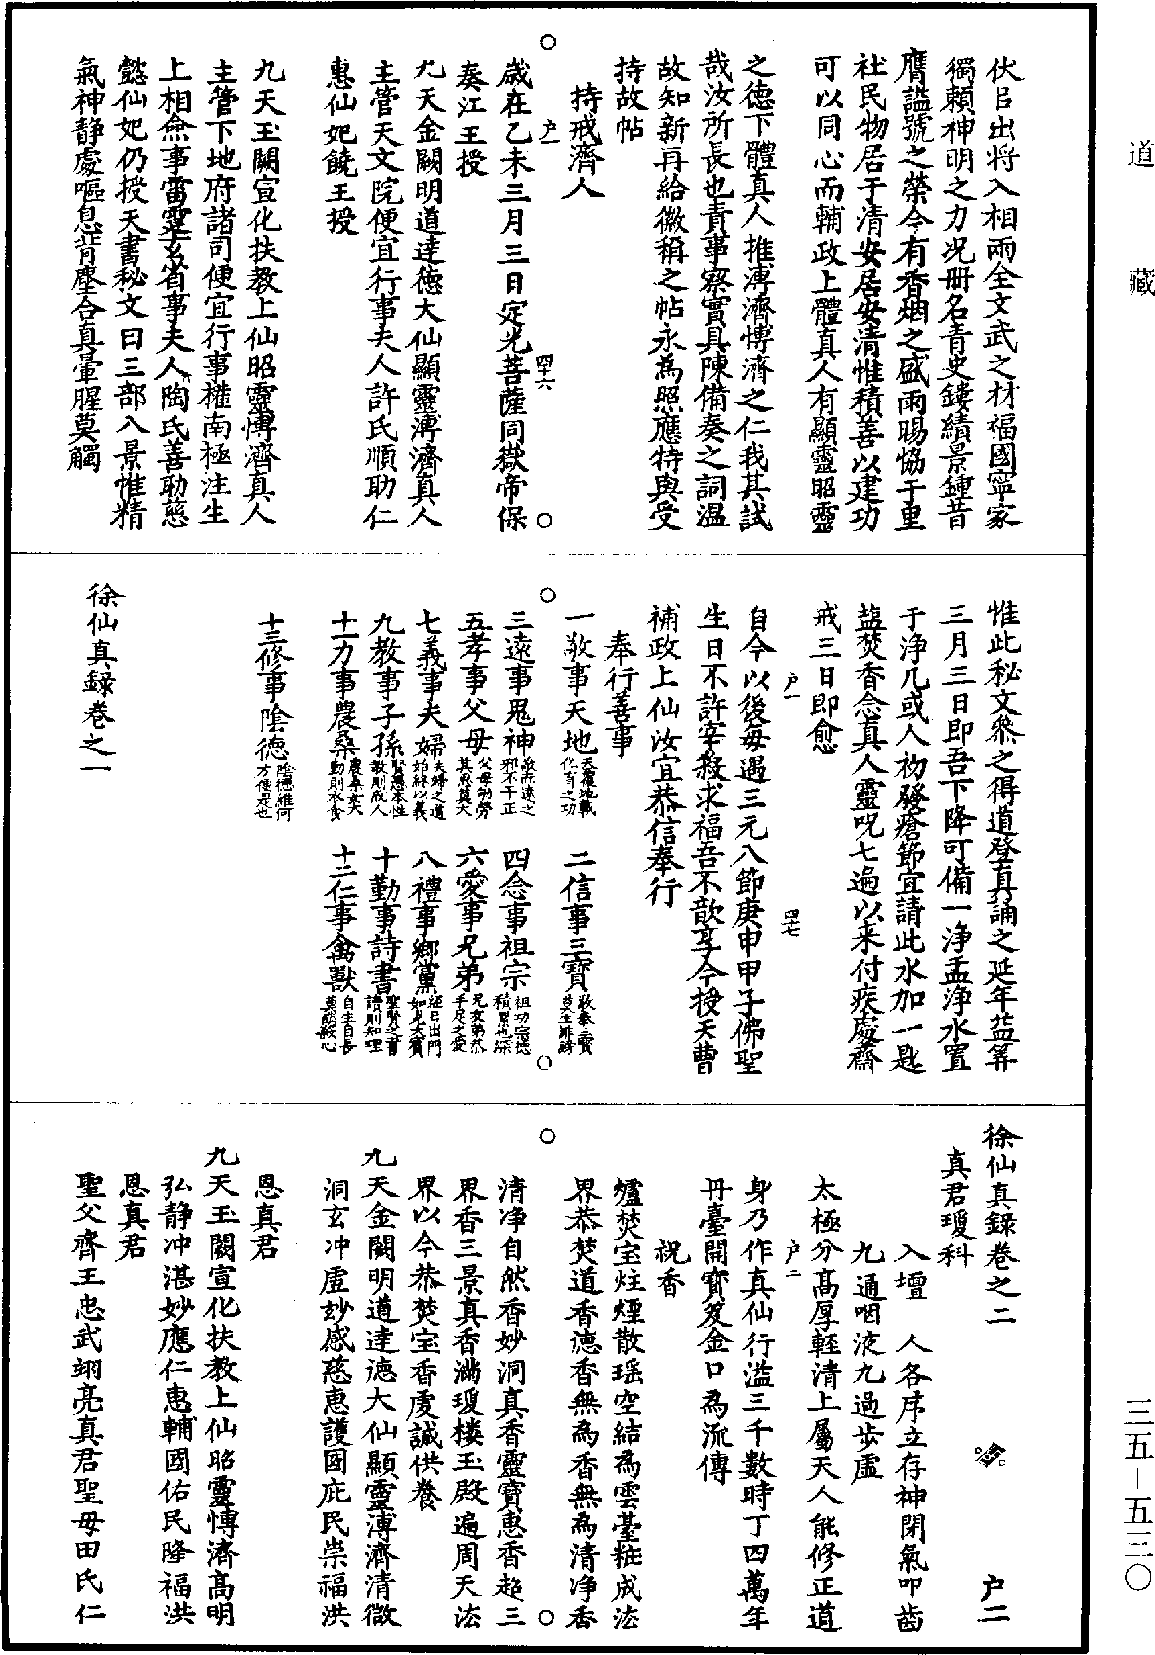 道藏
三五－五三〇
伏㠯出将入相兩全文武之材福國寧家
獨賴神明之力况冊名青史鏤績景鍾昔
膺謚號之榮今有香烟之盛雨暘協于重
社民物居于清安居安清惟積善以建功
可以同心而輔政上體真人有顯靈昭靈
之德下體真人推溥濟博濟之仁我其試
哉汝所長也責事察實具陳備奏之詞温
故知新再給徽稱之帖永為照應特與受
持故帖
持戒濟人
户一
四十六
歲在乙未三月三日定光菩薩同嶽帝保
奏江王授
九天金闕明道達德大仙顯靈溥濟真人
主管天文院便宜行事夫人許氏順助仁
惠仙妃饒王授
九天玉闕宣化扶教上仙昭靈博濟真人
主管下地府諸司便宜行事權南極注生
上相僉事雷霆玄省事夫人陶氏善助慈
懿仙妃仍授天書秘文曰三部八景惟精
氣神静處嘔息背塵合真葷腥莫觸
惟此秘文叅之得道登真誦之延年益筭
三月三日即吾下降可備一浄盂浄水置
于浄几或人初發瘡節宜請此水加一匙
盐焚香念真人靈呪七遍以来付疾處齋
戒三日即愈
户一
四七
自今以後每遇三元八節庚申甲子佛聖
生日不許宰殺求福吾不歆享今授天曹
補政上仙汝宜恭信奉行
奉行善事
一敬事天地天覆地載化育之功 二信事三寶敬奉三寶莫生誹謗
三遠事鬼神敬而遠之邪不干正 四念事祖宗祖功宗德積累也深
五孝事父母父母劬勞其恩莫大 六愛事兄弟兄友弟恭手足之愛
七義事夫婦夫婦之道始終以義 八禮事鄉黨經曰出門如見大賓
九教事子孫賢愚本性教則成人 十勤事詩書聖賢之書讀則知理
十一力事農桑農桑女夫勤則衣食 十二仁事禽獸自生自長莫起殺心
十三修事陰德陰德維何方便是也
徐仙真録卷之一
徐仙真録卷之二 户二
真君瓊科
入壇 人各序立存神閉氣叩齒
九通咽液九過步虛
太極分高厚輕清上屬天人能修正道
户二
身乃作真仙行溢三千數時丁四萬年
丹臺開寶笈金口為流傳
祝香
爐焚宝炷煙散瑶空結為雲臺粧成法
界恭焚道香德香無為香無為清浄香
清浄自然香妙洞真香靈寶惠香超三
界香三景真香滿瓊楼玉殿遍周天法
界以今恭焚宝香虔誠供養
九天金闕明道達德大仙顯靈溥濟清微
洞玄冲虛妙感慈惠護國庇民崇福洪
恩真君
九天玉闕宣化扶教上仙昭靈博濟高明
弘静冲湛妙應仁惠輔國佑民隆福洪
恩真君
聖父齊王忠武翊亮真君聖母田氏仁